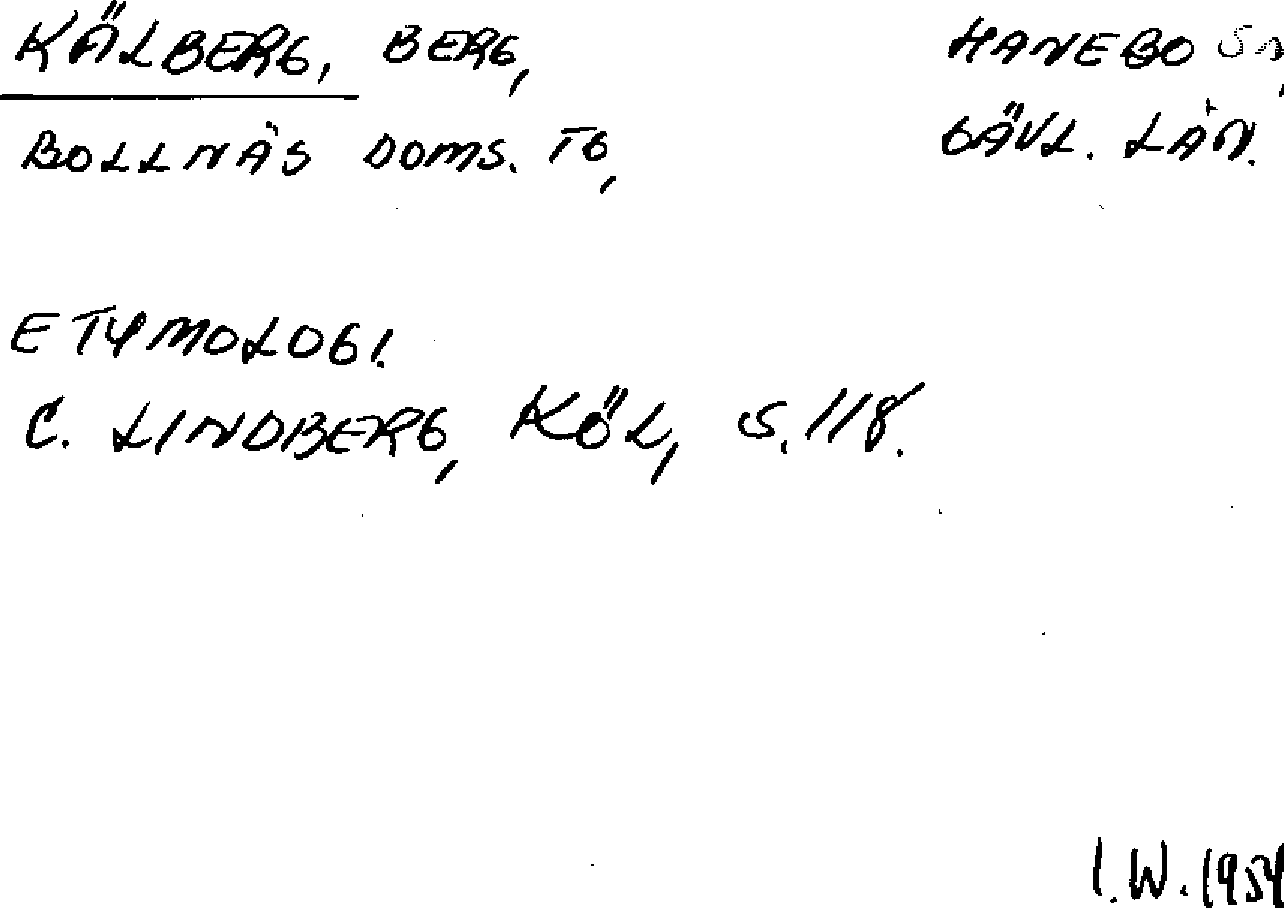 KÄLBERG, BERG, HANEBO Sn,
BOLLNÄS DOMS. TG, GÄVL. LÄN.
ETYMOLOGI.
C. LINDBERG, KÖL, S. 118.
I.W. 1954